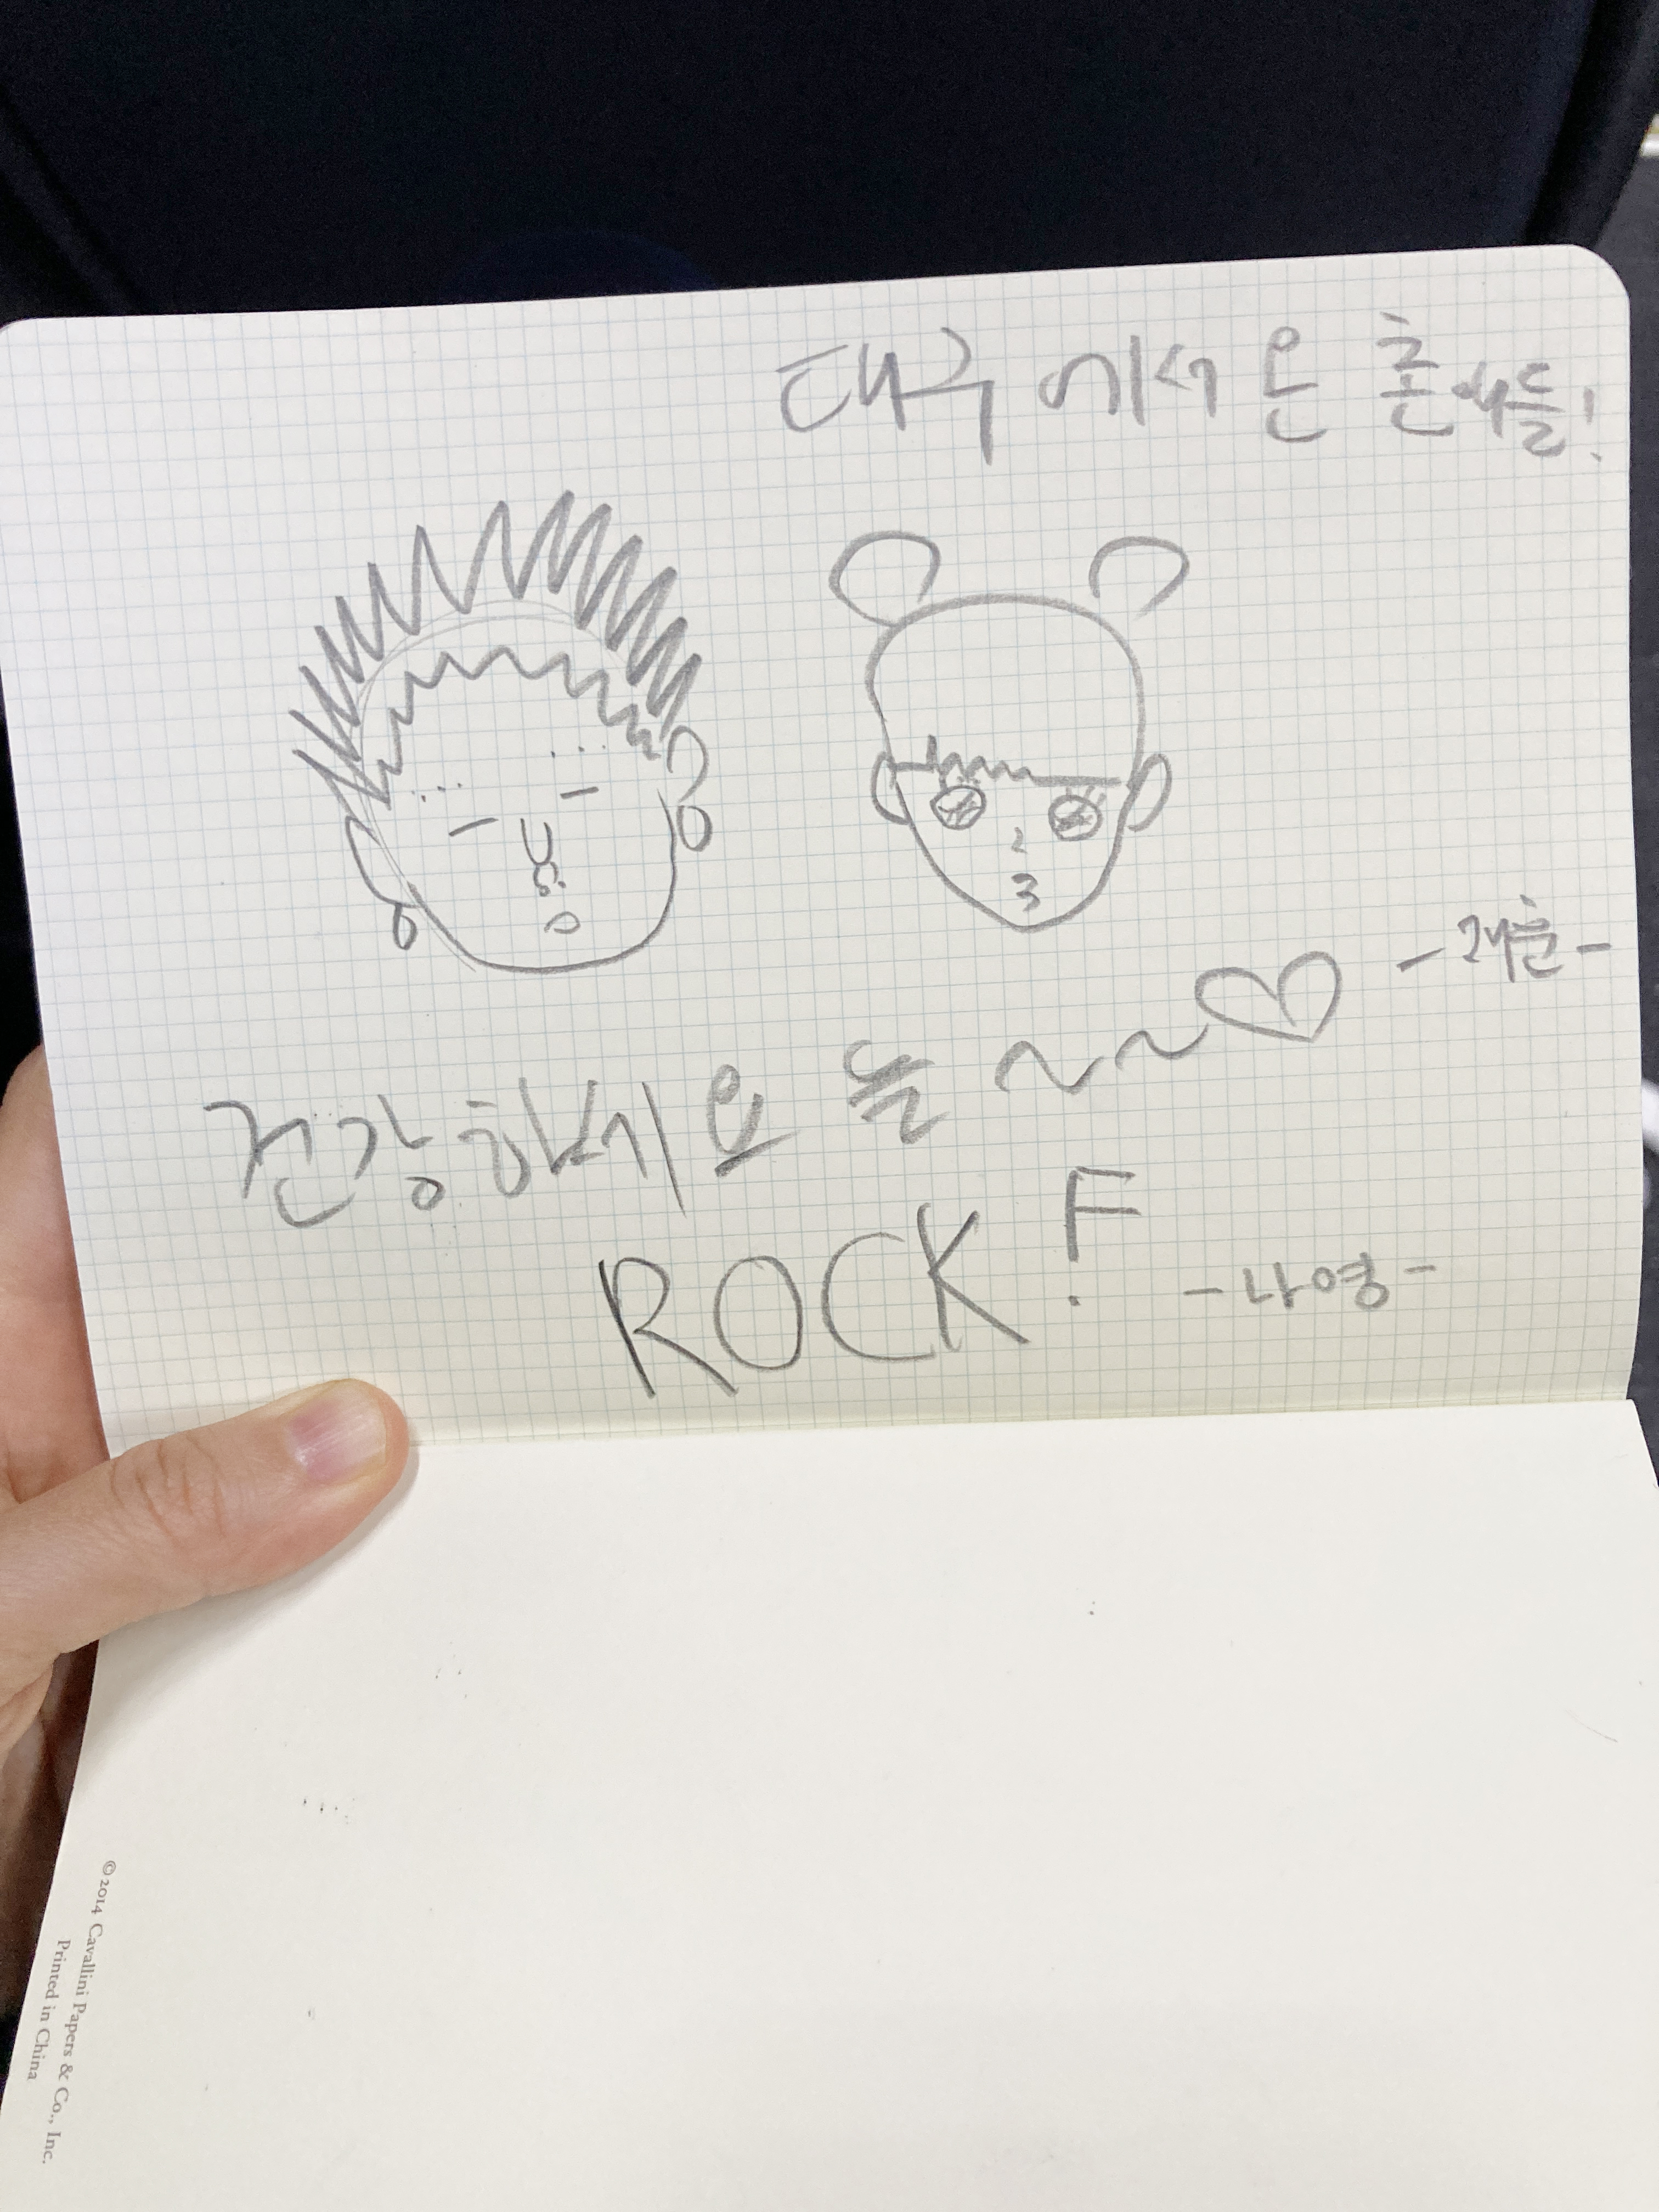 대구 에서 온 촌애들!
건강하세요 늘 ~~♡
ROCK!
-나영-
© 2014 Cavallini Papers & Co., Inc.
Printed in China